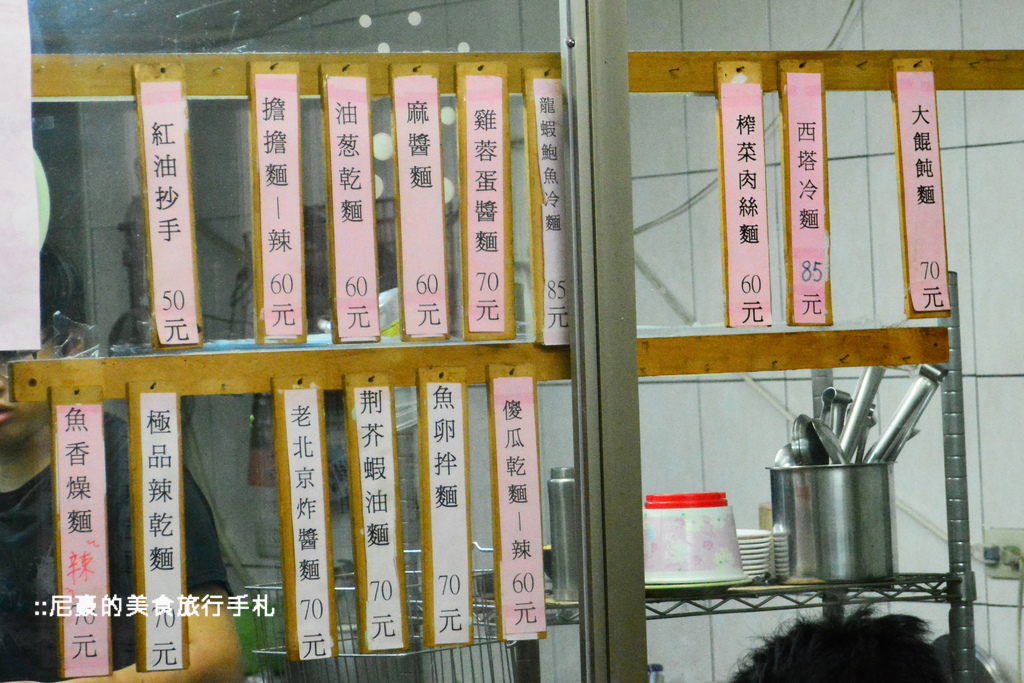 紅油抄手 50元
擔擔麵—辣 60元
油葱乾麵 60元
麻醬麵 60元
雞蓉蛋醬麵 70元
龍蝦鮑魚冷麵 85元
榨菜肉絲麵 60元
西塔冷麵 85元
大餛飩麵 70元
魚香燥麵 辣 70元
極品辣乾麵 70元
老北京炸醬麵 70元
荆芥蝦油麵 70元
魚卵拌麵 70元
傻瓜乾麵—辣 60元
::尼豪的美食旅行手札